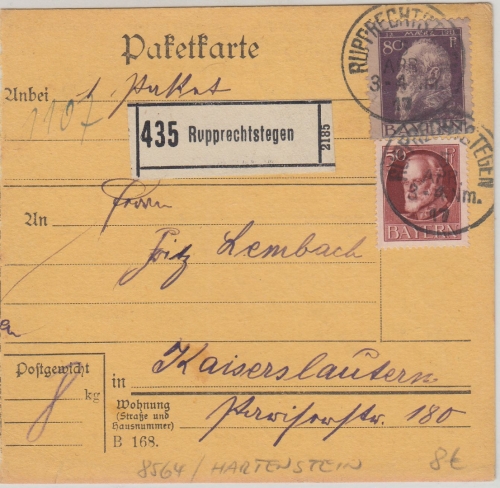 Paketkarte
Anbei 1 Paket
1107
435 Rupprechtstegen 2185
80 Pf
BAYERN
RUPPRECHTSTEGEN
50 Pf
BAYERN
An Herrn
Fritz Lembach
Postgewicht
8 kg
in Kaiserslautern
Wohnung
(Straße und
Hausnummer)
Pariserstr. 180
B 168.
8564/HARTENSTEIN 8€